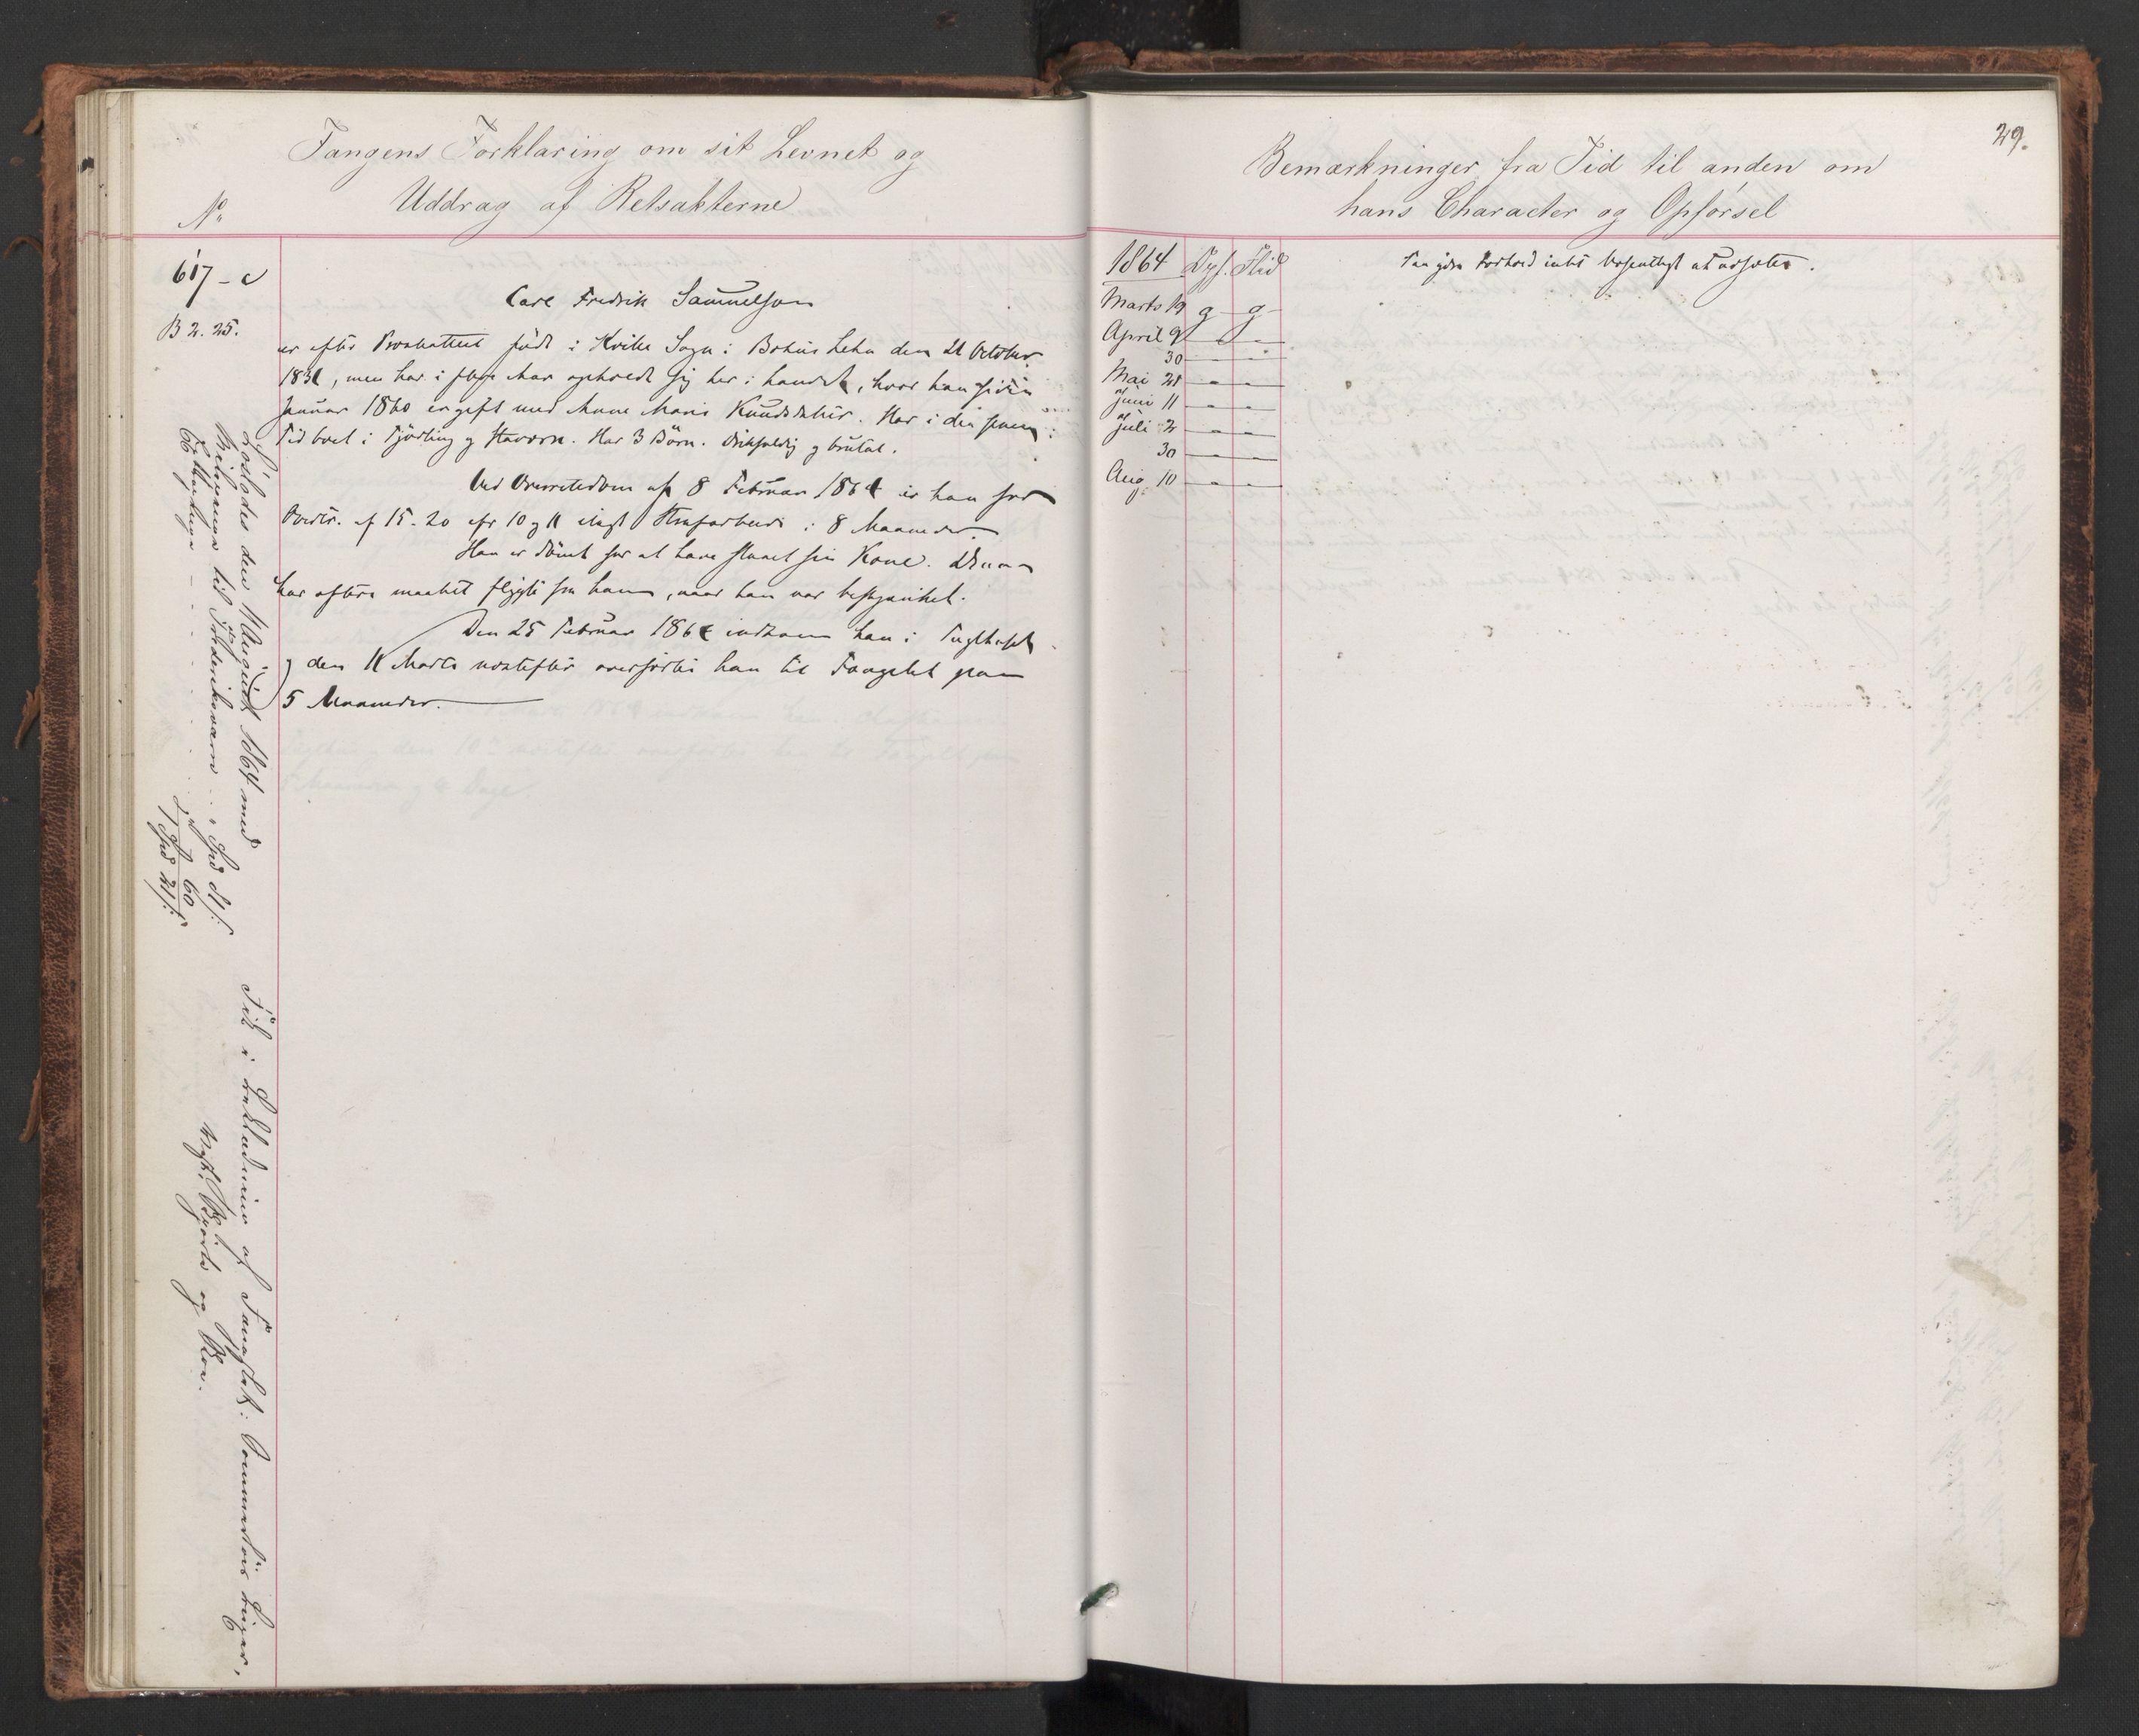 Fangens Forklaring om sit Levnet og
Uddrag af Retsakterne
No
617 - c
B 2. 25.
Carl Fredrik Samuelson
er efter Præstattest født i Sogn i Bohus Lehn den 21 October
1831, men har i flere Aar opholdt sig her i Landet, hvor han siden
Januar 1860 er gift med Anne Marie Knudsdatter. Har i den senere
Tid boet i Tjølling og Stavern. Har 3 Börn. Drikfældig og brutal.
Ved Overretsdom af 8 Februar 1864 er han for
Overtr. af 15-20 cfr 10 og 11 ilagt Strafarbeide i 8 Maaneder.
Han er dömt for at have slaaet sin Kone. Denne
har oftere maattet flygte fra ham, naar han var beskjænket.
Den 25 Februar 1864 indkom han i Tugthuset
og den 11 Marts næstefter overførtes han til Fængslet paa
5 Maaneder.
Løslodes den 11 August 1864 med
Reisepenge til Frederiksværn Spd
60
Spd
Fik i af Fængslet:
og
29.
Bemærkninger fra Tid til anden om
hans Character og Opførsel
1864 Opf. Flid
Marts 19 g g
April 9 - -
30 - -
Mai 21 - -
Juni 11 - -
Juli 2 - -
30 - -
Aug. 10 - -
Paa hans Forhold intet Væsentligt at udsætte.